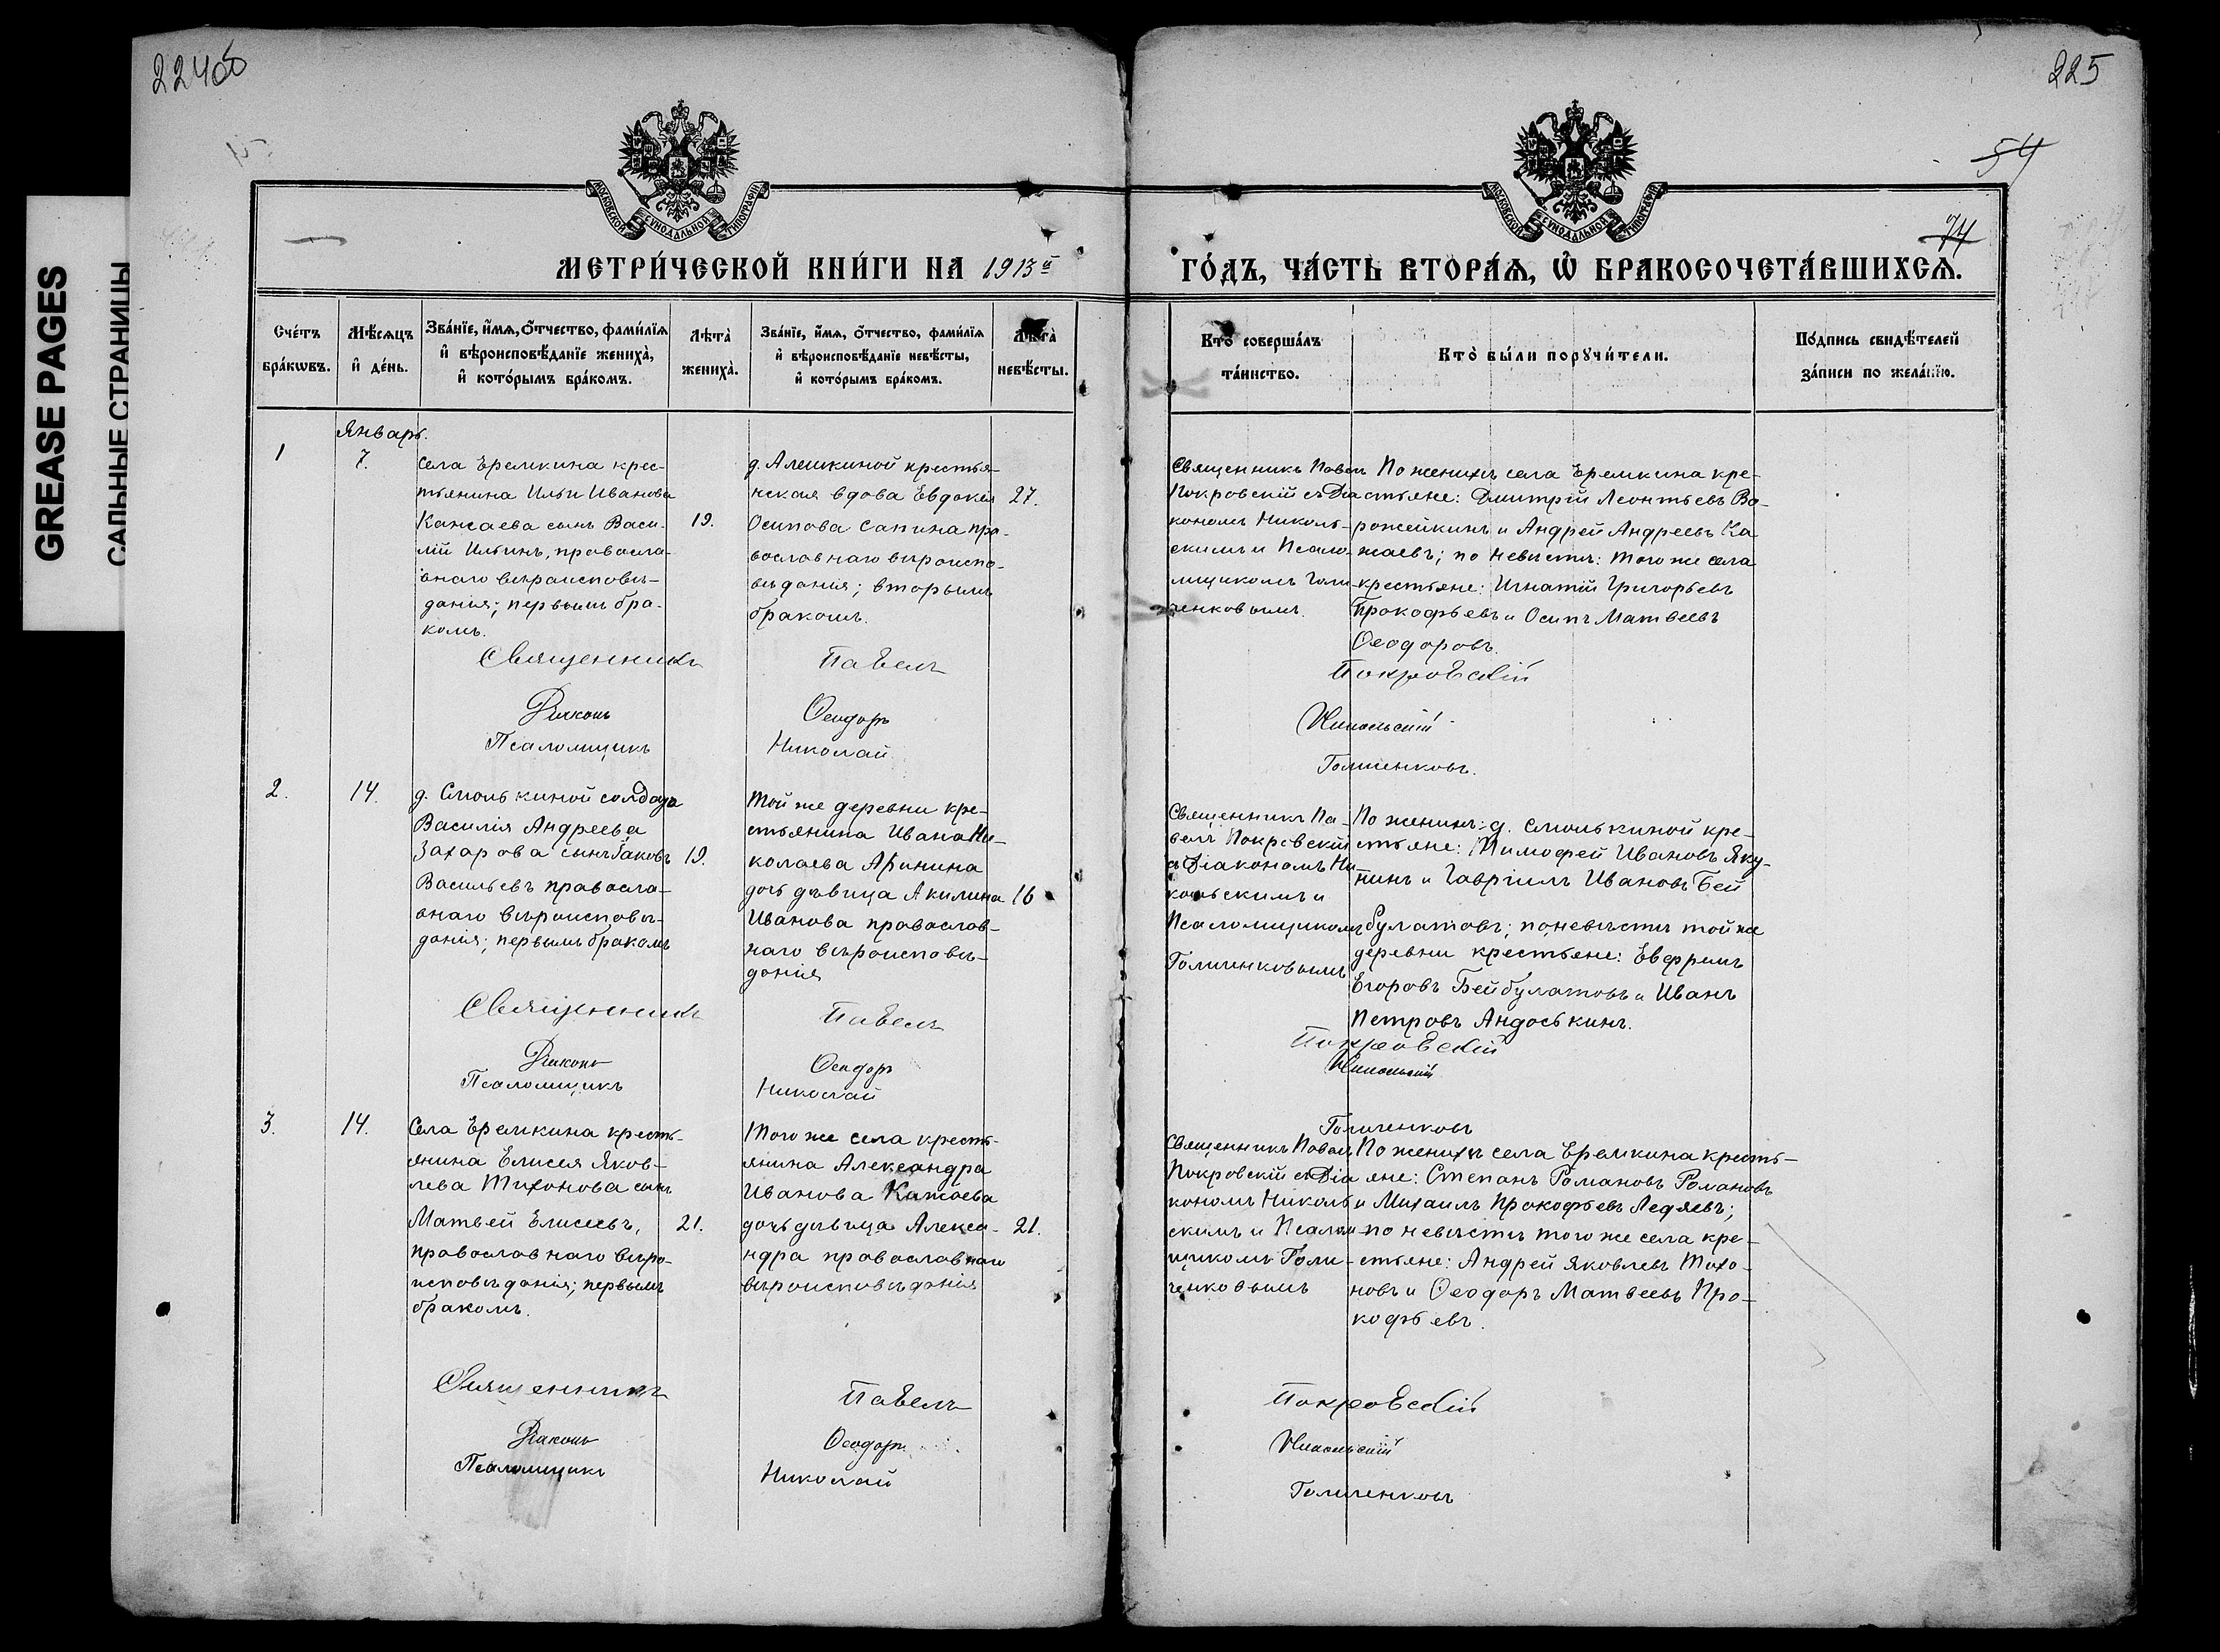 224об
225
54
74
GREASE PAGES
САЛЬНЫЕ СТРАНИЦЫ
МОСКОВСКОЙ СѴНОДАЛЬНОЙ ТИПОГРАФІИ
МОСКОВСКОЙ СѴНОДАЛЬНОЙ ТИПОГРАФІИ
МЕТРИ́ЧЕСКОЙ КНИ́ГИ НА 1913й
ГО́ДЪ, ЧА́СТЬ ВТОРА́Ѧ, Ѡ҆ БРАКОСОЧЕТА́ВШИХСѦ.
Сче́тъ
бра́кѡвъ.
Мѣ́сѧцъ
и҆ де́нь.
Зва́нїе, и҆́мѧ, ѻ҆́тчество, фами́лїѧ
и҆ вѣроисповѣ́данїе жениха̀,
и҆ кото́рымъ бра́комъ.
Лѣта̀
жениха̀.
Зва́нїе, и҆́мѧ, ѻ҆́тчество, фами́лїѧ
и҆ вѣроисповѣ́данїе невѣ́сты,
и҆ кото́рымъ бра́комъ.
Лѣта̀
невѣ́сты.
Кто̀ соверша́лъ
та́инство.
Кто̀ бы́ли порꙋчи́тели.
По́дпись свидѣ́телей
за́писи по жела́нїю.
Январь.
1
7.
Села Еремкина крес-
тьянина Ильи Иванова
Канаева сынъ Васи-
лій Ильинъ, правосла-
внаго вѣроисповѣ-
данія; первымъ бра-
комъ.
19.
д. Алешкиной крестья-
нская вдова Евдокія
Осипова Сапина пра-
вославнаго вѣроиспо-
вѣданія; вторымъ
бракомъ.
27.
Священникъ Павелъ
Покровскій съ Діа
кономъ Николь-
скимъ и Псало-
мщикомъ Голи-
ченковымъ.
По женихѣ села Еремкина кре-
стьяне: Дмитрій Леонтьевъ Во-
рожейкинъ и Андрей Андреевъ Ка
жаевъ; по невѣстѣ: того же села
крестьяне: Игнатій Григорьевъ
Прокофьевъ и Осипъ Матвеевъ
Ѳеодоровъ.
Священникъ Павелъ Покровскій
Діаконъ Ѳеодоръ Никольскій
Псаломщикъ Николай Голиченковъ.
2.
14.
д. Смолькиной солдата
Василія Андреева
Захарова сынъ Іаковъ
Васильевъ правосла-
внаго вѣроисповѣ-
данія; первымъ бракомъ
19.
Той же деревни кре-
стьянина Ивана Ни-
колаева Аринина
дочь дѣвица Акилина
Иванова православ-
наго вѣроисповѣ-
данія
16
Священникъ Па-
велъ Покровскій
съ Діакономъ Ни
кольскимъ и
Псаломщикомъ
Голиченковымъ
По женихѣ: д. Смолькиной кре-
стьяне: Тимофей Ивановъ Яку-
нинъ и Гавріилъ Ивановъ Бей
булатовъ; по невѣстѣ той же
деревни крестьяне: Евфремъ
Егоровъ Бейбулатовъ и Иванъ
Петровъ Андоськинъ.
Священникъ Павелъ Покровскій
Діаконъ Ѳеодоръ Никольскій
Псаломщикъ Николай Голиченковъ
3.
14.
Села Еремкина кресть-
янина Елисея Яков-
лева Тихонова сынъ
Матвей Елисеевъ,
православнаго вѣро-
исповѣданія; первымъ
бракомъ.
21.
Того же села кресть-
янина Александра
Иванова Катаева
дочь дѣвица Алекса-
ндра православнаго
вѣроисповѣданія
21.
Священникъ Павелъ
Покровскій съ Діа
кономъ Николь
скимъ и Псалом-
щикомъ Голи-
ченковымъ
По женихѣ села Еремкина кресть-
яне: Степанъ Романовъ Романовъ
и Михаилъ Прокофьевъ Ледяевъ;
по невѣстѣ того же села кре-
стьяне: Андрей Яковлевъ Тихо-
новъ и Ѳеодоръ Матвеевъ Про-
кофьевъ.
Священникъ Павелъ Покровскій
Діаконъ Ѳеодоръ Никольскій
Псаломщикъ Николай Голиченковъ